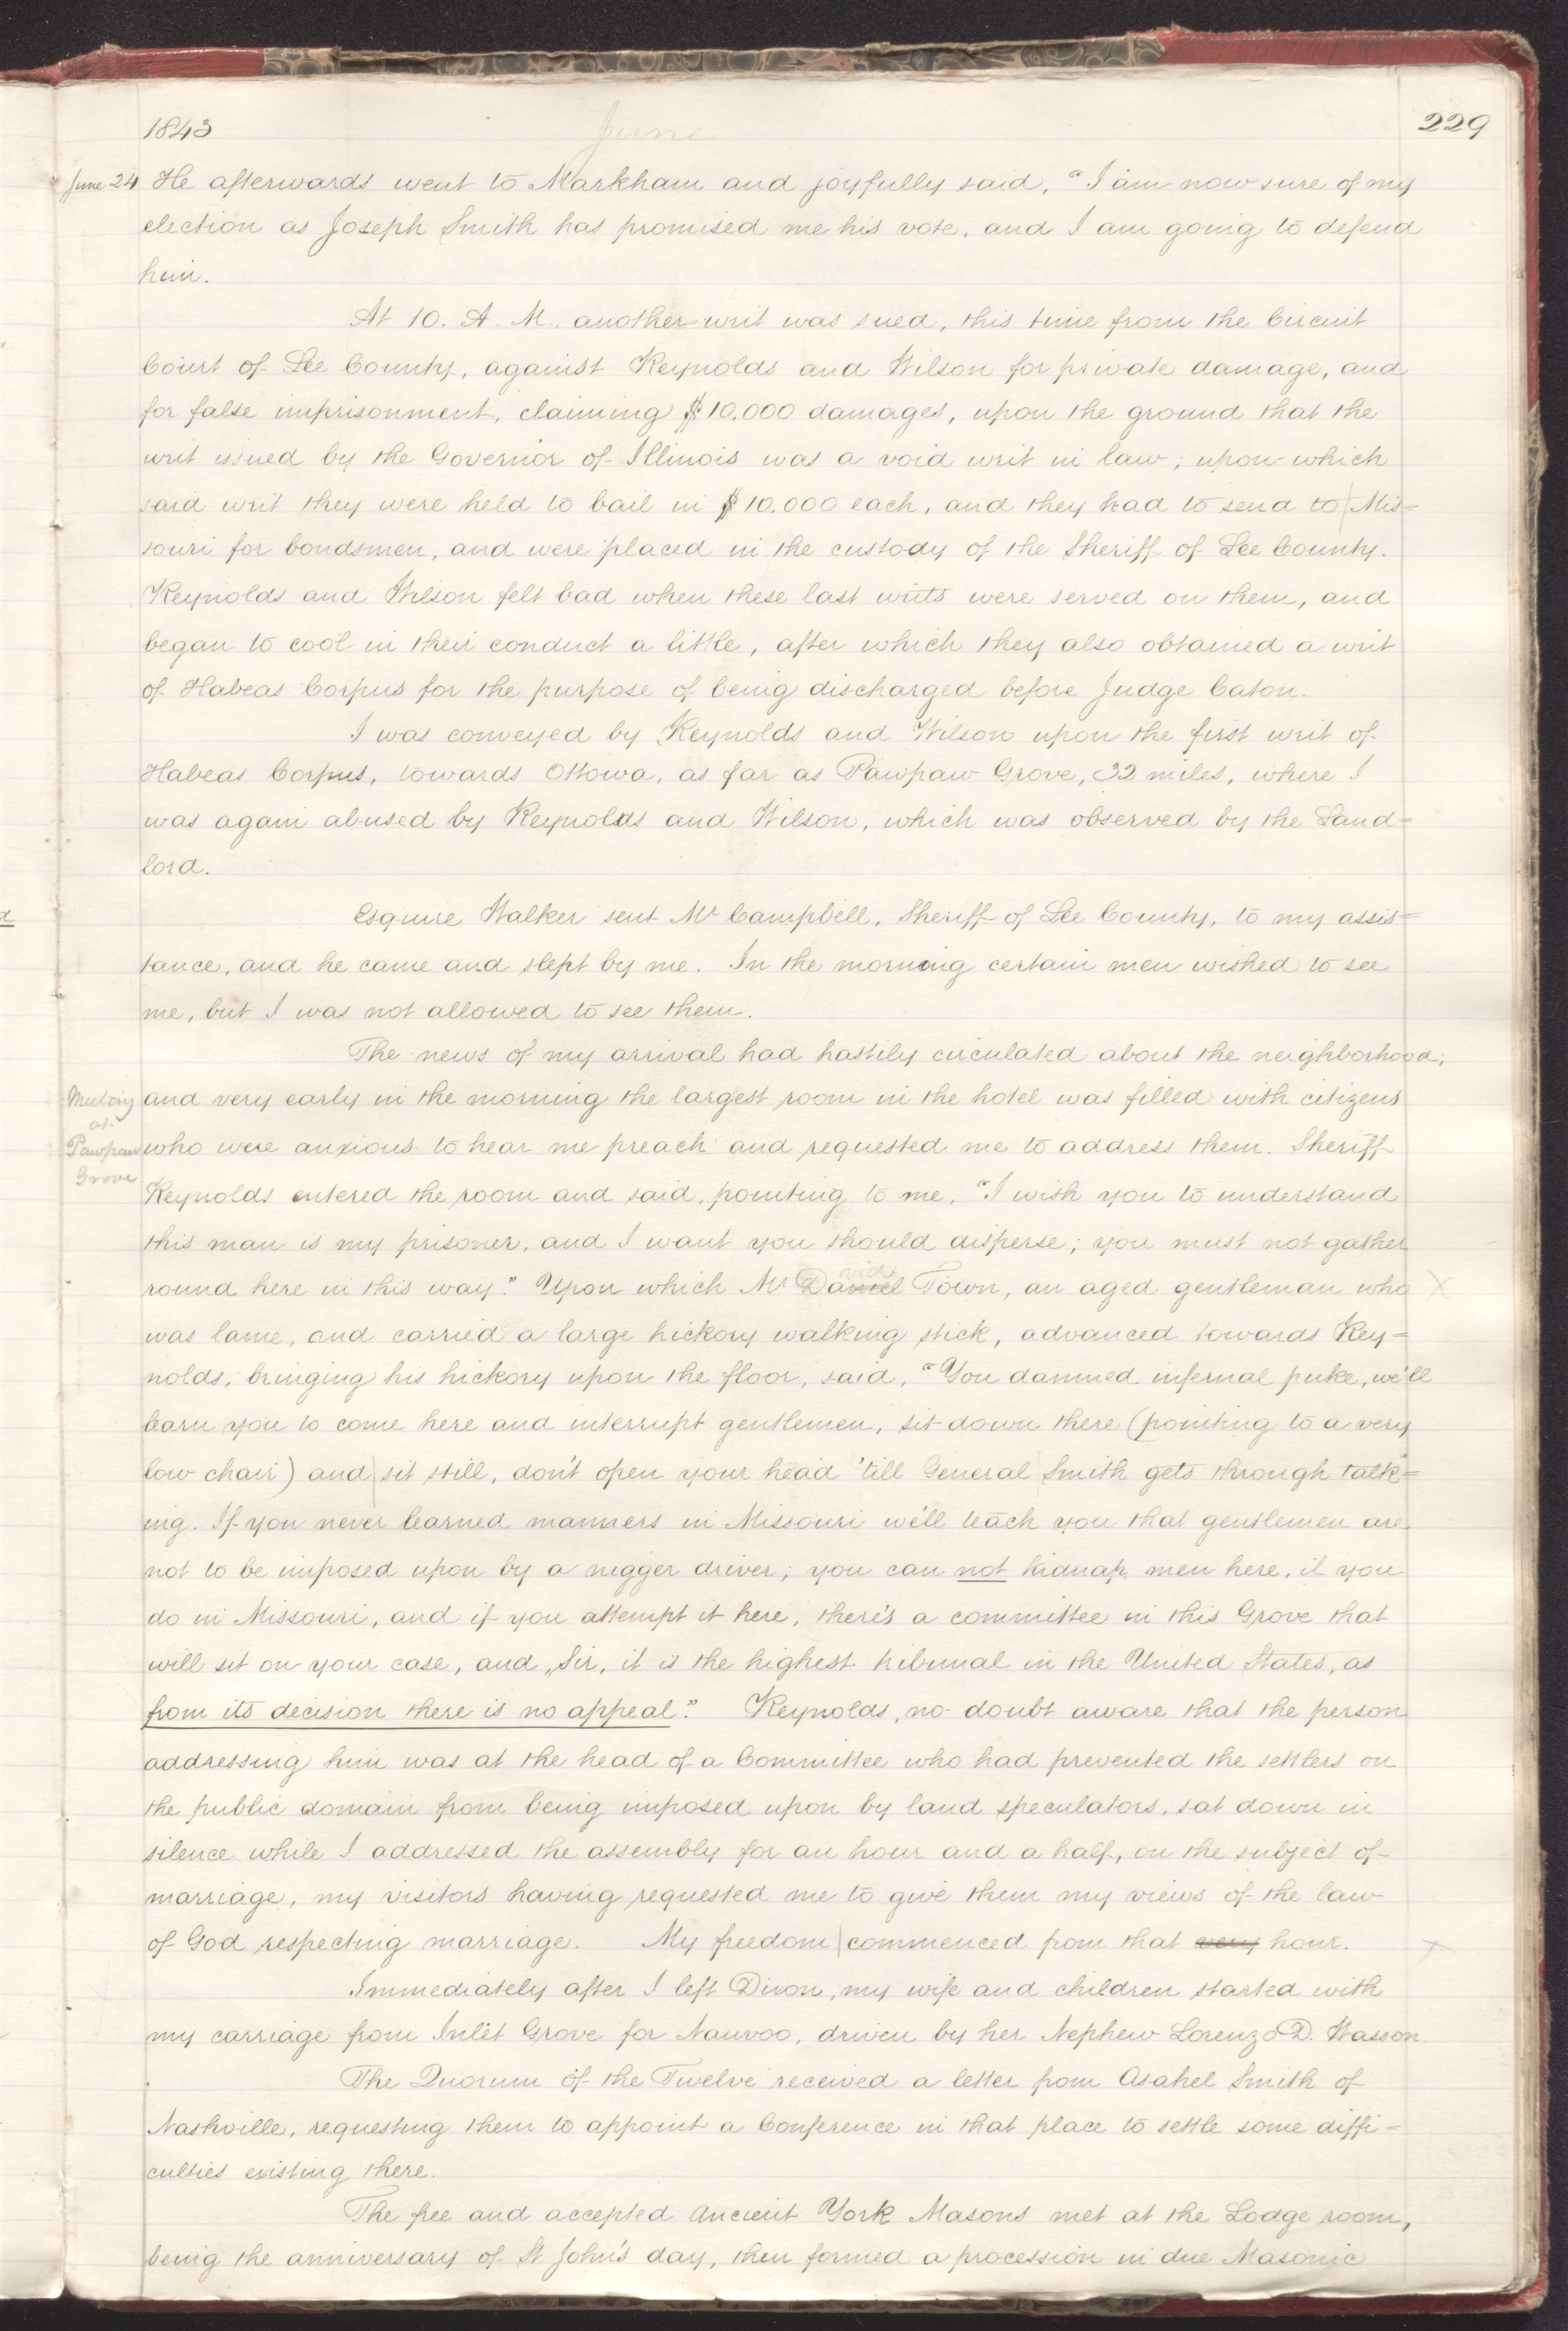 1843 June 229
June 24 He afterwards went to Markham and joyfully said, "I am now sure of my
election as Joseph Smith has promised me his vote, and I am going to defend
him.
At 10. A. M. another writ was sued, this time from the Circuit
Court of Lee County, against Reynolds and Wilson for private damage, and
for false imprisonment, claiming $10.000 damages, upon the ground that the
writ issued by the Governor of Illinois was a void writ in law; upon which
said writ they were held to bail in $10.000 each, and they had to send to Mis=
souri for bondsmen, and were placed in the custody of the Sheriff of Lee County.
Reynolds and Wilson felt bad when these last writs were served on them, and
began to cool in their conduct a little, after which they also obtained a writ
of Habeas Corpus for the purpose of being discharged before Judge Caton.
I was conveyed by Reynolds and Wilson upon the first writ of
Habeas Corpus, towards Ottowa, as far as Pawpaw Grove, 32 miles, where I
was again abused by Reynolds and Wilson, which was observed by the Land=
lord.
Esquire Walker sent Mr Campbell, Sheriff of Lee County, to my assis=
tance, and he came and slept by me. In the morning certain men wished to see
me, but I was not allowed to see them.
The news of my arrival had hastily circulated about the neighborhood;
Meeting and very early in the morning the largest room in the hotel was filled with citizens
at
Pawpaw who were anxious to hear me preach and requested me to address them. Sheriff
Grove
Reynolds entered the room and said, pointing to me, "I wish you to understand
this man is my prisoner, and I want you should disperse; you must not gather
vid
round here in this way." Upon which Mr Daniel Town, an aged gentleman who X
was lame, and carried a large hickory walking stick, advanced towards Rey=
nolds, bringing his hickory upon the floor, said, "You damned infernal puke, we'll
learn you to come here and interrupt gentlemen, sit down there (pointing to a very
low chair) and sit still, don't open your head 'till General Smith gets through talk=
ing. If you never learned manners in Missouri we'll teach you that gentlemen are
not to be imposed upon by a nigger driver; you can not kidnap men here, if you
do in Missouri, and if you attempt it here, there's a committee in this Grove that
will sit on your case, and, Sir, it is the highest tribunal in the United States, as
from its decision there is no appeal." Reynolds, no doubt aware that the person
addressing him was at the head of a Committee who had prevented the settlers on
the public domain from being imposed upon by land speculators, sat down in
silence while I addressed the assembly for an hour and a half, on the subject of
marriage, my visitors having requested me to give them my views of the law
of God respecting marriage. My freedom commenced from that very hour. X
Immediately after I left Dixon, my wife and children started with
my carriage from Inlet Grove for Nauvoo, driven by her Nephew Lorenzo D. Wasson.
The Quorum of the Twelve received a letter from Asahel Smith of
Nashville, requesting them to appoint a Conference in that place to settle some diffi=
culties existing there.
The free and accepted Ancient York Masons met at the Lodge room,
being the anniversary of St John's day, then formed a procession in due Masonic